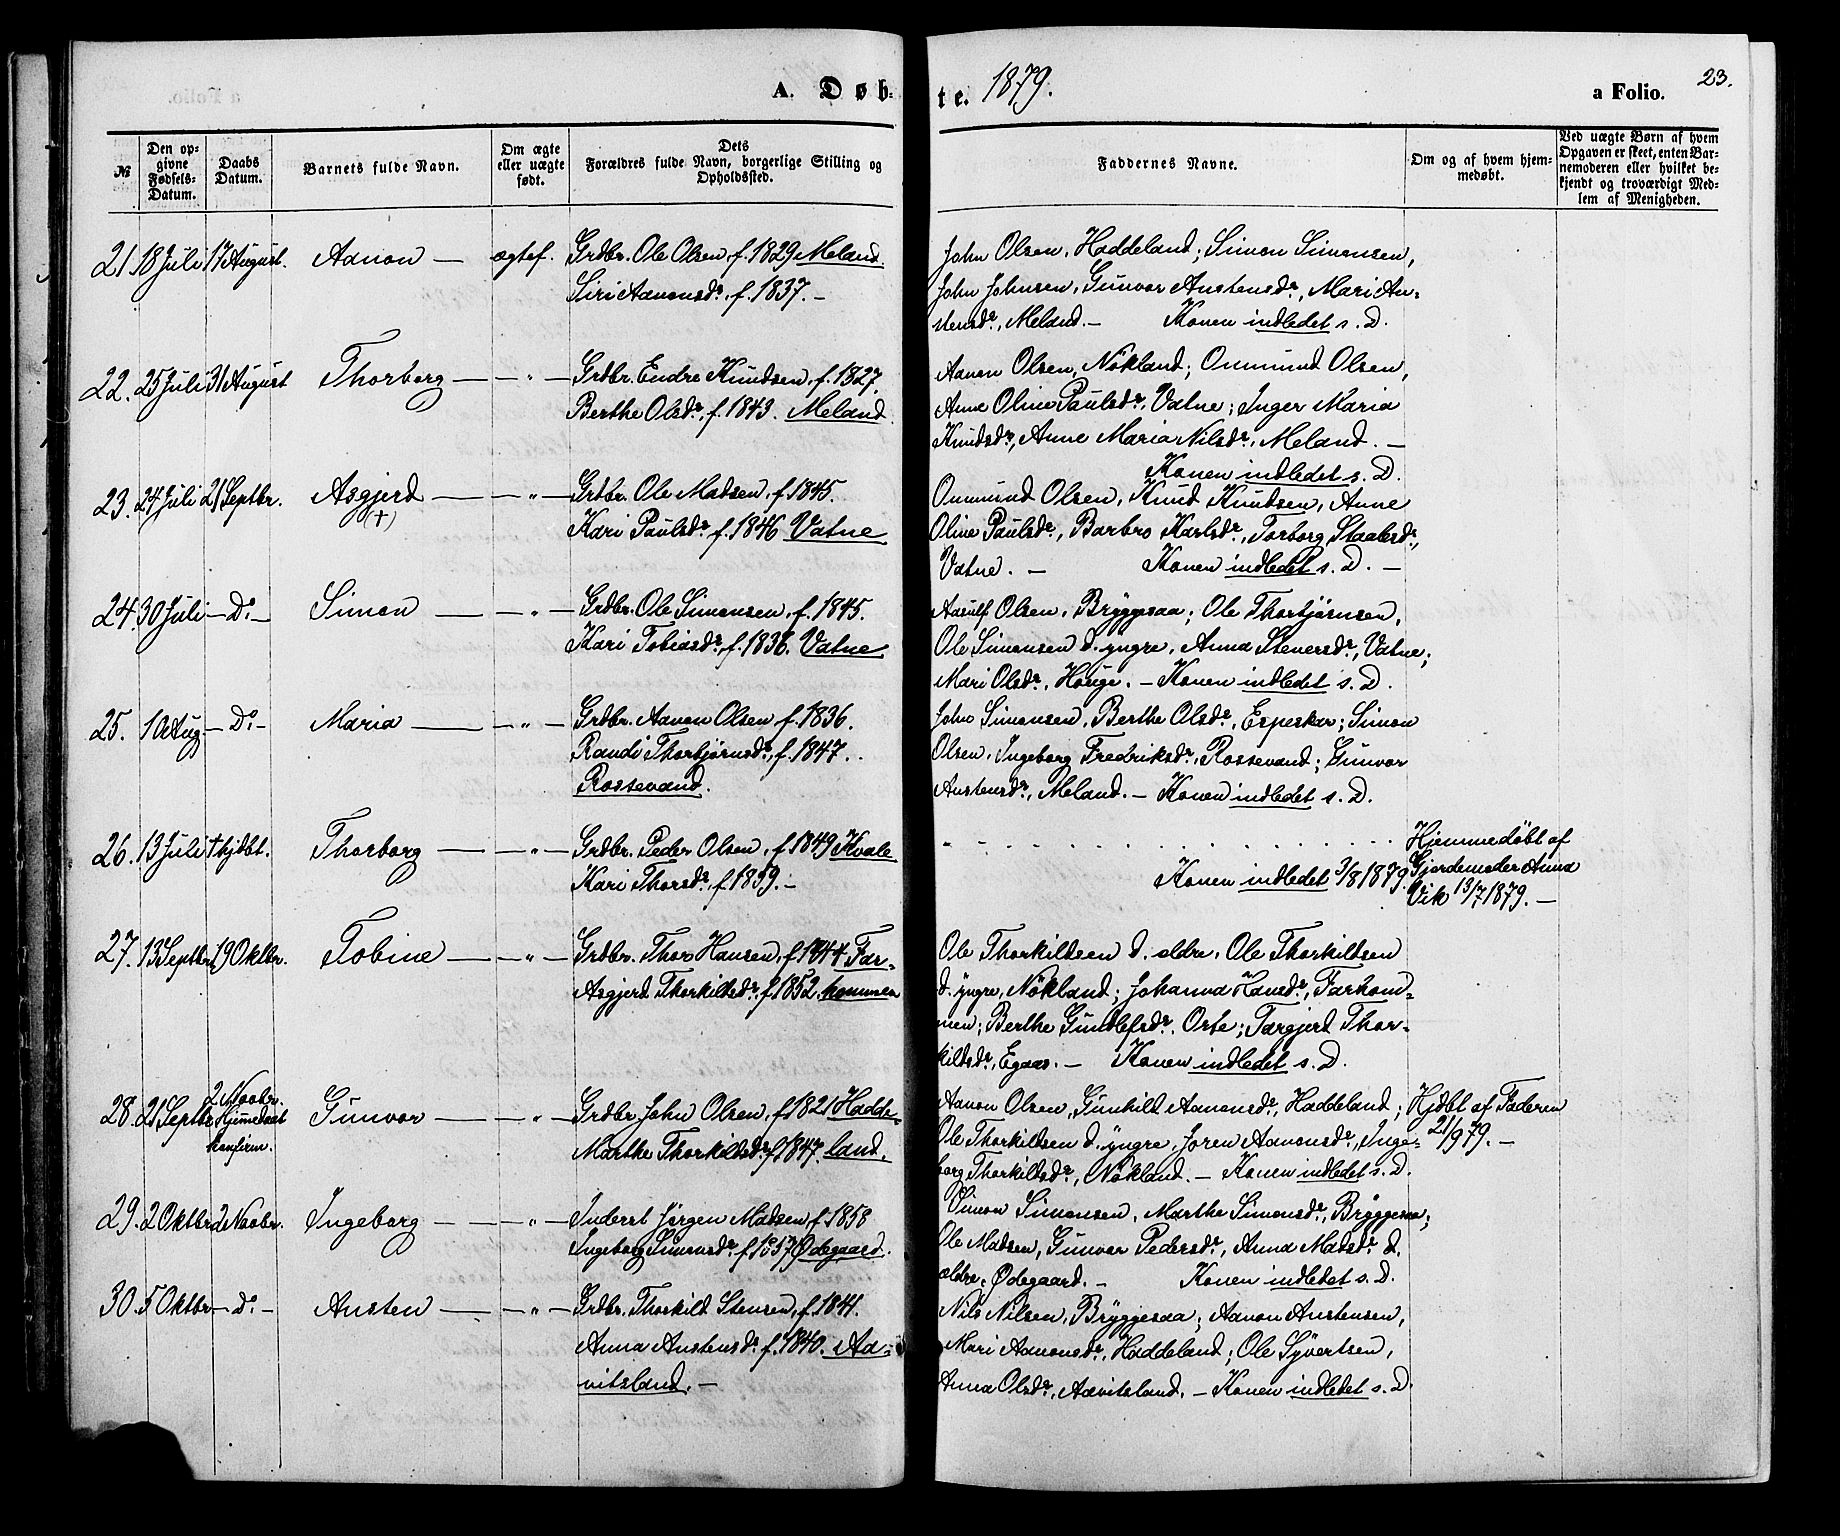 A. Døb-
te. 1879.
a Folio.
23.
№
Den op-
givne
Fødsels-
Datum.
Daabs
Datum.
Barnets fulde Navn.
Om ægte
eller uægte
født.
Dets
Forældres fulde Navn, borgerlige Stilling og
Opholdssted.
Faddernes Navne.
Om og af hvem hjem-
medøbt.
Ved uægte Børn af hvem
Opgaven er skeet, enten Bar-
nemoderen eller hvilket be-
kjendt og troværdigt Med-
lem af Menigheden.
21. 18 Juli 17 August. Aanon — ægtef. Grdbr. Ole Olsen, f. 1829 Meland.
Siri Aanonsdr. f. 1837. –
John Olsen, Haddeland; Simon Simonsen,
John Johnsen, Gunvor Austensdr., Mari Au-
stensdr., Meland. – Konen indledet s. D.
22. 25 Juli 31 August Thorborg — „ — Grdbr. Endre Knudsen, f. 1827.
Berthe Olsdr., f. 1843. Meland.
Aanon Olsen, Nökland; Onmund Olsen,
Anne Oline Paulsdr., Vatne; Inger Maria
Knudsdr., Anne Maria Nilsdr., Meland. –
Konen indledet s. D.
23. 24 Juli 21 Septbr. Asgjerd — „ — Grdbr. Ole Madsen, f. 1845.
(+)
Kari Paulsdr. f. 1846 Vatne
Onmund Olsen, Knud Knudsen, Anne
Oline Paulsdr., Barbro Karlsdr., Torborg Staalesdr.,
Vatne. – Konen indledet s. D. –
24. 30 Juli – Do – Simon — „ — Grdbr. Ole Simonsen, f. 1845.
Kari Tobiasdr., f. 1836. Vatne
Aasulf Olsen, Bryggesaa; Ole Thorbjørnsen,
Ole Simonsen d. yngre, Anna Stenersdr., Vatne;
Mari Olsdr., Houge. – Konen indledet s. D.
25. 10 Aug. – Do – Maria — „ — Grdbr. Aanon Olsen f. 1836.
Randi Thorbjørnsdr., f. 1847.
Rossevand.
John Simonsen, Berthe Olsdr., Espeskar; Simon
Olsen, Ingeborg Fredriksdr., Rossevand; Gunvor
Austensdr., Meland. – Konen indledet s. D.
26. 13 Juli + hjdbt. Thorborg — „ — Grdbr. Peder Olsen, f. 1849 Kvale
Kari Thorsdr., f. 1839. –
Konen indledet 3/8 1879.
Hjemmedöbt af
Gjordemoder Anna
Vik 13/7 1879. –
27. 13 Septbr. 19 Oktbr. Tobine — „ — Grdbr. Thor Hansen, f. 1844 Far-
Asgjerd Thorkildsdr., f. 1852. kommen
Ole Thorkildsen d. eldre, Ole Thorkildsen
d. yngre, Nökland; Johanna Hansdr., Farkom-
men; Berthe Gundlefsdr., Orte; Targjerd Thor-
kildsdr., Egaas. – Konen indledet s. D.
28. 21 Septbr. 2 Novbr. Hjemmedaab konfirm. Gunvor — „ — Grdbr. John Olsen, f. 1821 Hadde-
Marthe Thorkildsdr. f. 1847. land.
Aanon Olsen, Gunhild Aanonsdr., Haddeland;
Ole Thorkildsen d. yngre, Joren Aanonsdr., Inge-
borg Thorkildsdr., Nökland. – Konen indledet s. D.
Hjdbt af Faderen
21/9 79. –
29. 2 Oktbr. 2 Novbr. Ingeborg — „ — Inderst Jørgen Madsen f. 1858
Ingeborg Simonsdr. f. 1857 Ødegaard.
Simon Simonsen, Marthe Simonsdr., Bryggesaa;
Ole Madsen, Gunvor Pedersdr., Anna Madsdr. d.
ældre, Ødegaard. – Konen indledet s. D.
30. 5 Oktbr. – Do – Austen — „ — Grdbr. Thorkild Stensen, f. 1841.
Anna Austensdr. f. 1840. Aa-
vitsland. –
Nils Nilsen, Bryggesaa; Aanon Austensen,
Mari Aanonsdr., Haddeland; Ole Syvertsen,
Anna Olsdr., Aavitsland. – Konen indledet s. D.